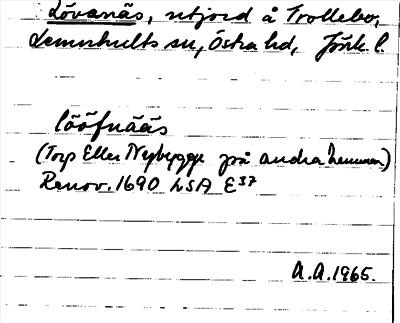 Lövanäs, utjord å Trollebo,
Lemnhults sn, Östra hd, Jönk. l.
Lööfnääs
(Torp Eller Nybygge på andra hemman)
Renov. 1690 LSA E37
A.A. 1965.